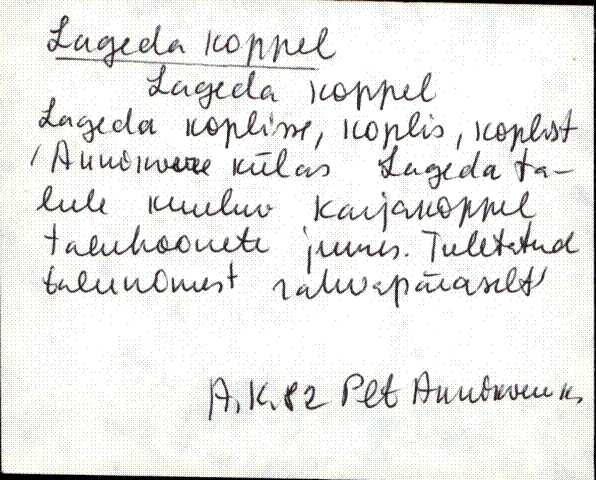 Lageda koppel
Lageda koppel
Lageda koplisse, koplis, koplist
'Annikvere külas Lageda ta-
lule kuuluv karjakoppel
taluhoonete juures. Tuletatud
talunimest rahvapäraselt'
A. K. 82 Plt Annikvere k.